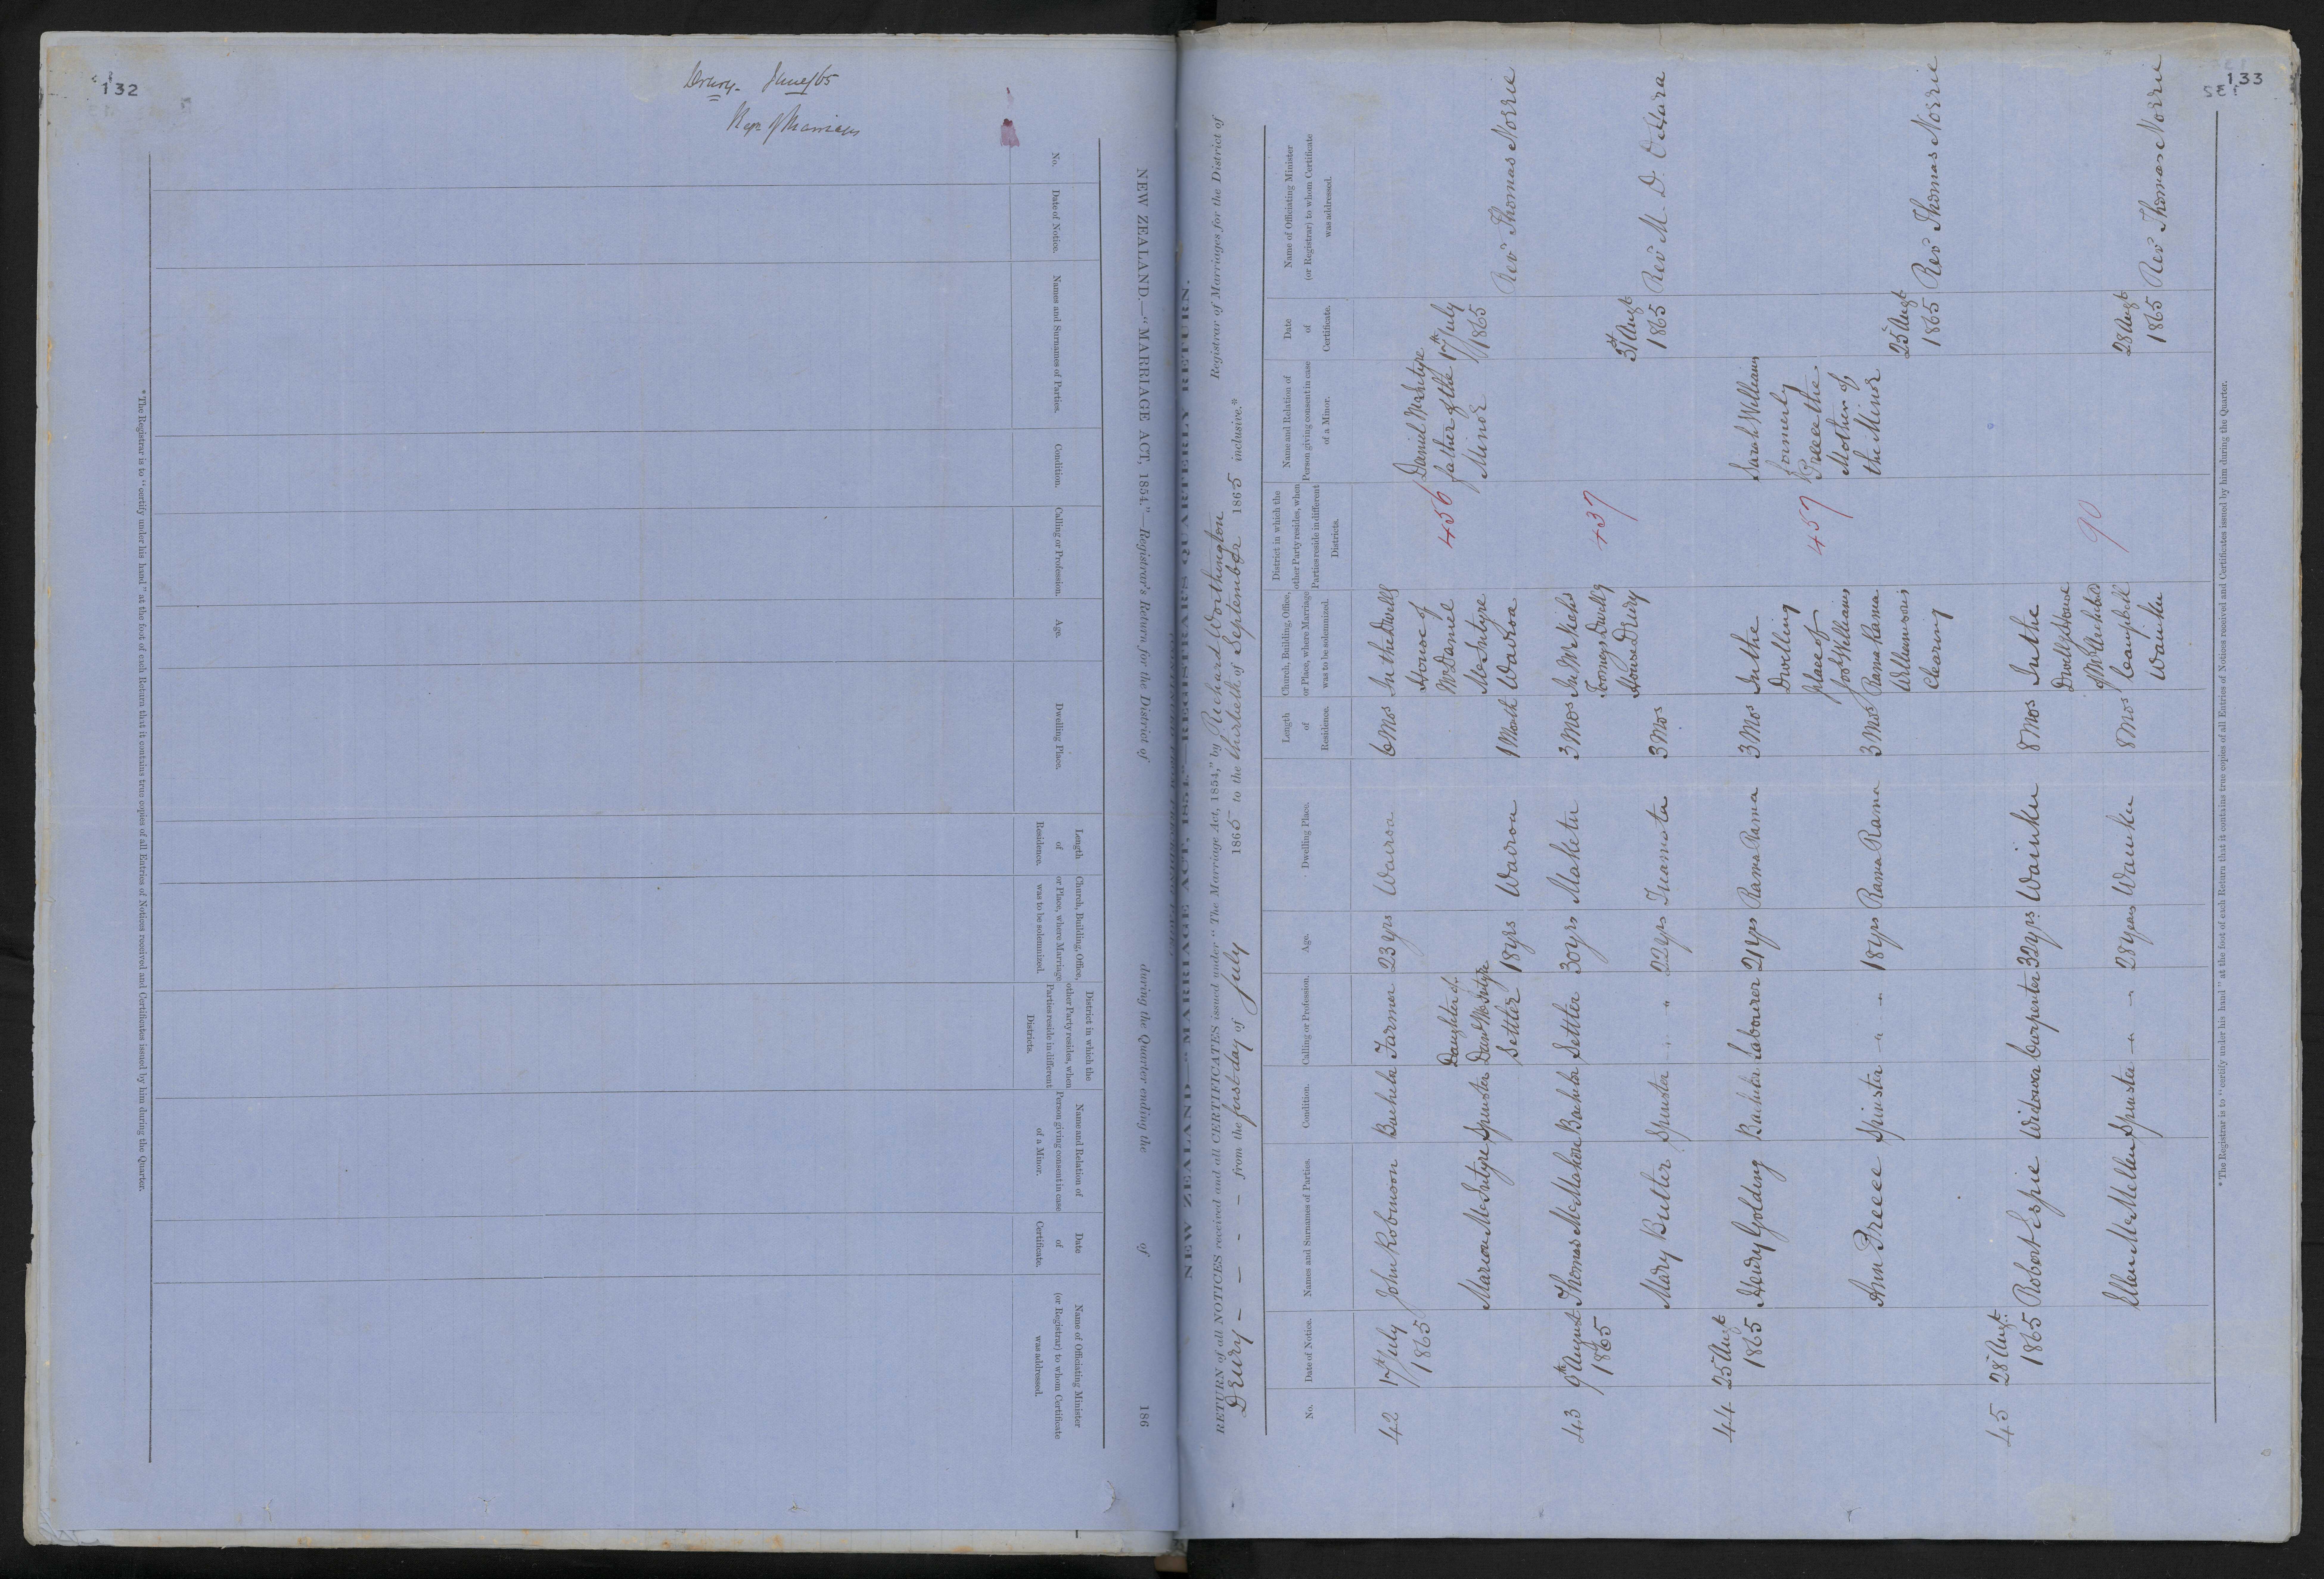 132
Drury. June/65
NEW ZEALAND.—"MARRIAGE ACT, 1854."—Registrar's Return for the District of during the Quarter ending the of 186
No.
Date of Notice.
Names and Surnames of Parties.
Condition.
Calling or Profession.
Age.
Dwelling Place.
Length
of
Residence.
Church, Building, Office,
or Place, where Marriage
was to be solemnized.
District in which the
other Party resides, when
Parties reside in different
Districts.
Name and Relation of
Person giving consent in case
of a Minor.
Date
of
Certificate.
Name of Officiating Minister
(or Registrar) to whom Certificate
was addressed.
* The Registrar is to "certify under his hand" at the foot of each Return that it contains true copies of all Entries of Notices received and Certificates issued by him during the Quarter.
133
NEW ZEALAND—"MARRIAGE ACT, 1854."—REGISTRAR'S QUARTERLY RETURN.
RETURN of all NOTICES received and all CERTIFICATES issued under "The Marriage Act, 1854," by Richard Worthington Registrar of Marriages for the District of
Drury - - - - from the first day of July 1865 to the thirtieth of September 1865 inclusive.*
No.
Date of Notice.
Names and Surnames of Parties.
Condition.
Calling or Profession.
Age.
Dwelling Place.
Length
of
Residence.
Church, Building, Office,
or Place, where Marriage
was to be solemnized.
District in which the
other Party resides, when
Parties reside in different
Districts.
Name and Relation of
Person giving consent in case
of a Minor.
Date
of
Certificate.
Name of Officiating Minister
(or Registrar) to whom Certificate
was addressed.
42
17th July
1865
John Robinson
Bachelor
Farmer
23 yrs
Wairoa
6 Mos
In the Dwellg
House of
Mr Daniel
McIntyre
Wairoa
456
Daniel McIntyre
father of the
Minor
17th July
1865
Rev Thomas Norrie
Marion McIntyre
Spinster
Daughter of
Danl McIntyre
Settler
18 yrs
Wairoa
1 Month
43
9th August
1865
Thomas McMahon
Bachelor
Settler
30 yrs
Maketu
3 Mos
House Drury
437
31st Augt
1865
Rev M. D. O'Hara
Mary Butler
Spinster
" "
22 yrs
Tuamata
3 Mos
44
25 Augt
1865
Henry Golding
Bachelor
Labourer
21 yrs
Rama Rama
3 Mos
In the
Dwelling
place of
Jos Williams
Rama Rama
Williamsons
Clearing
457
Sarah Williams
formerly
Preece the
Mother of
the Minor
25 Augt
1865
Rev Thomas Norrie
Ann Preece
Spinster
" "
18 yrs
Rama Rama
3 Mos
45
28 Augt
1865
Robert Espie
Widower
Carpenter
32 yrs
Waiuku
8 Mos
In the
Dwellg House
of Mr Archibald
Campbell
Waiuku
90
28 Augt
1865
Rev Thomas Norrie
Ellen McMellen
Spinster
" "
28 years
Waiuku
8 Mos
* The Registrar is to "certify under his hand" at the foot of each Return that it contains true copies of all Entries of Notices received and Certificates issued by him during the Quarter.